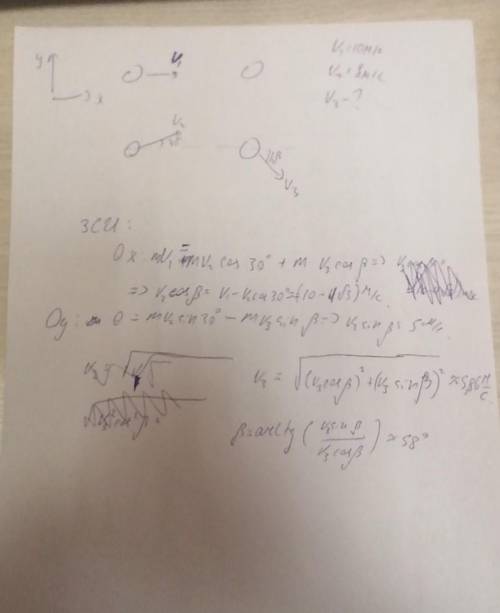 y
x
V₁
V₁ = 10 м/с
V₂ = 8 м/с
V₃ - ?
V₂
30°
β
V₃
ЗСИ:
Ox: mV₁ = mV₂ cos 30° + m V₃ cos β =>
=> V₃ cos β = V₁ - V₂ cos 30° = (10 - 4√3) м/с
Oy: 0 = mV₂ sin 30° - mV₃ sin β => V₃ sin β =
V₃ = √((V₃ cos β)² + (V₃ sin β)²) ≈
β = arctg (V₃ sin β / V₃ cos β) ≈ 58°